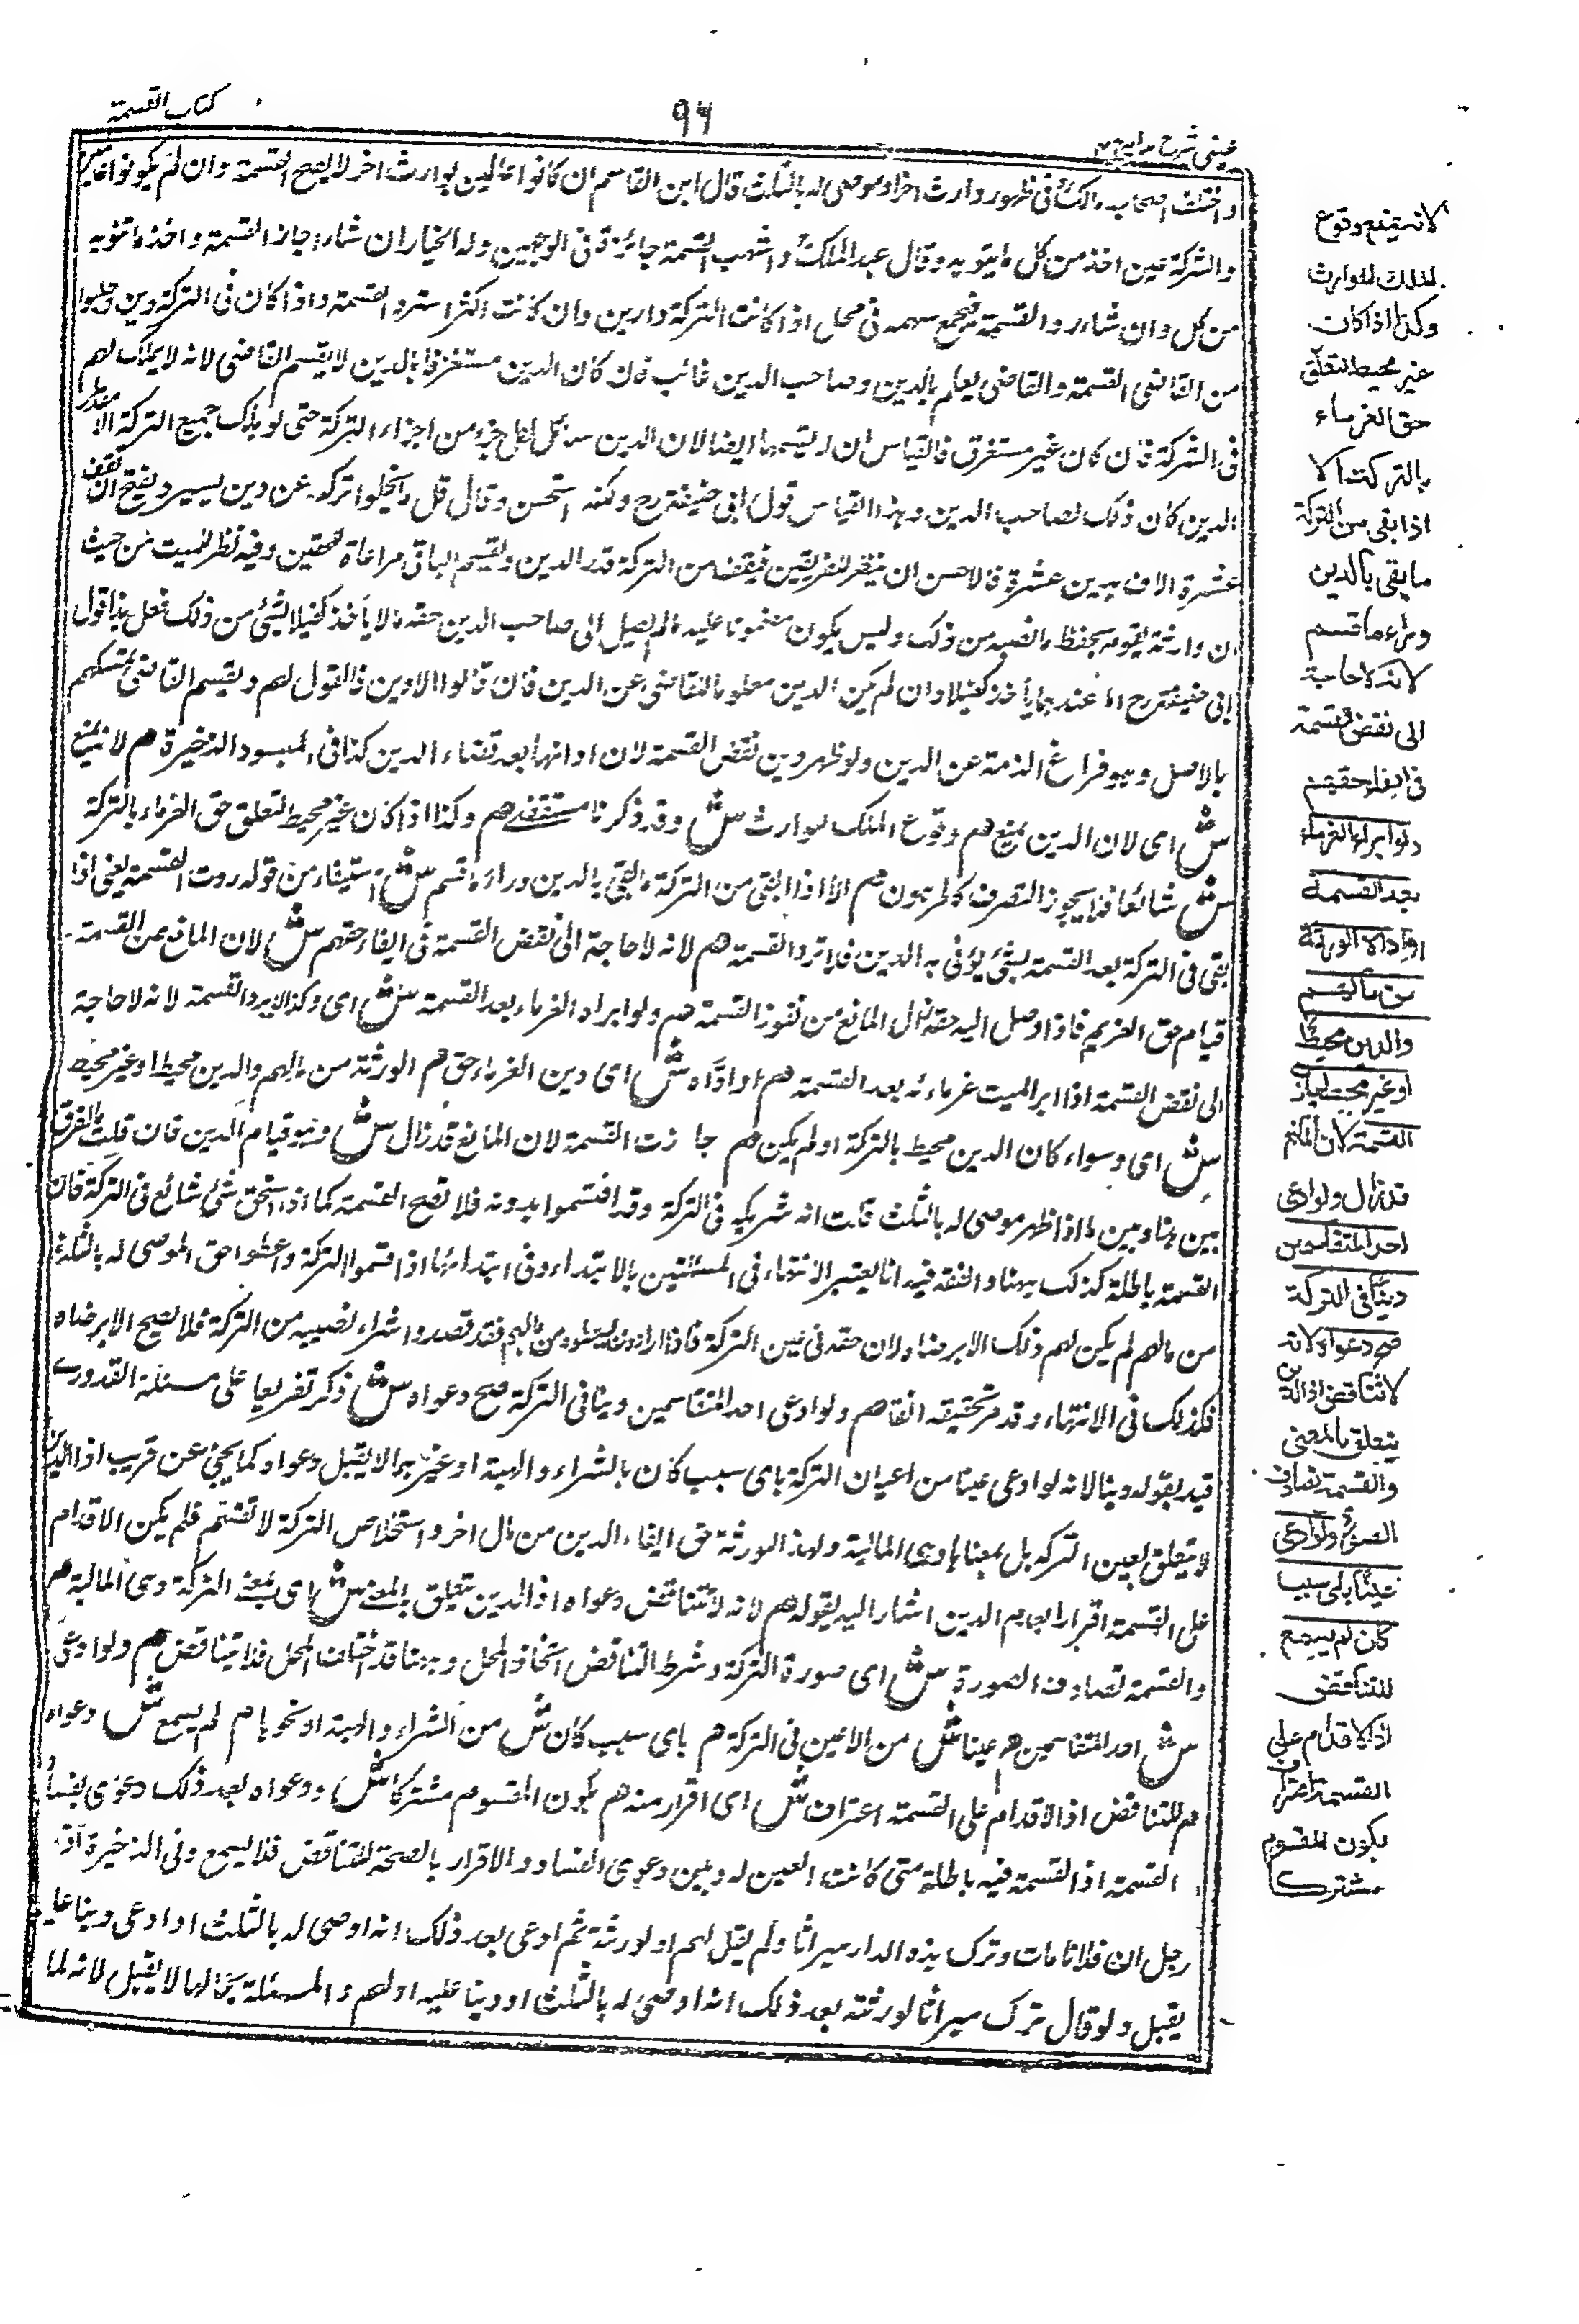 كتاب القسمة
٩٦
عينى شرح هدايه ج ٤
واختلف اصحاب مالك فى ظهور وارث اخر او موصى له بالثلث قال ابن القاسم ان كانوا عالمين بوارث اخر لا يصح القسمة وان لم يكونوا عالمين
والتركة عين اخذ من كل ما ينوبه وقال عبد الملك واشهب القسمة جائزة فى الوجهين وله الخيار ان شاء اجاز القسمة واخذ ما ينوبه
من كل وان شاء رد القسمة فيجمع سهمه فى محل اذا كانت التركة دارين وان كانت اكثر استرد القسمة واذا كان فى التركة دين وطلبوا
من القاضى القسمة والقاضى يعلم بالدين وصاحب الدين غائب فان كان الدين مستغرقا بالدين لا يقسم القاضى لانه لا يملك لهم
فى التركة فان كان غير مستغرق فالقياس ان لا يقسمها ايضا لان الدين شاغل لكل جزء من اجزاء التركة حتى لو هلك جميع التركة الا مقدار
الدين كان ذلك لصاحب الدين وهذا القياس قول ابى حنيفة رح ولكنه استحسن وقال قل ما يخلو تركة عن دين يسير ويقبح ان يقف
عشرة الاف بدين عشرة فالاحسن ان ينظر للفريقين فيقف من التركة قدر الدين ويقسم الباقى مراعاة للحقين وفيه نظر للميت من حيث
ان وارثه يقوم بحفظ ما نصيبه من ذلك وليس يكون مضمونا عليه ما لم يصل الى صاحب الدين حقه ولا يأخذ كفيلا بشئ من ذلك فعل هذا قول
ابى حنيفة رح اما عندهما يأخذ كفيلا وان لم يكن الدين معلوما للقاضى عن الدين فان قالوا لا دين فالقول لهم ويقسم القاضى لتمسكهم
بالاصل وهو فراغ الذمة عن الدين ولو ظهر دين نقض القسمة لان اوانها بعد قضاء الدين كذا فى المبسوط والذخيرة هم لانه يمنع
ش اى لان الدين يمنع هم وقوع الملك للوارث ش وقد ذكرنا مستقصى هم وكذا اذا كان غير محيط لتعلق حق الغرماء بالتركة
ش شائعا فلا يجوز التصرف كالمرهون هم الا اذا بقى من التركة ما يفى بالدين وراء ما قسم ش استثناء من قوله ردت القسمة يعنى اذا
بقى فى التركة بعد القسمة شئ يوفى به الدين فلا ترد القسمة هم لانه لا حاجة الى نقض القسمة فى ايفاء حقهم ش لان المانع من القسمة
قيام حق الغريم فاذا وصل اليه حقه زال المانع من نفوذ القسمة هم ولو ابراه الغرماء بعد القسمة ش اى وكذا لا يرد القسمة لانه لا حاجة
الى نقض القسمة اذا ابر الميت غرماءه بعد القسمة هم او اداه ش اى دين الغرماء حق هم الورثة من مالهم والدين محيط او غير محيط
ش اى وسواء كان الدين محيط بالتركة او لم يكن هم جازت القسمة لان المانع قد زال ش وهو قيام الدين فان قلت ما الفرق
بين هنا وبين ما اذا ظهر موصى له بالثلث قلت انه شريكه فى التركة وقد اقتسموا بدونه فلا تصح القسمة كما اذا استحق شئ شائع فى التركة فان
القسمة باطلة كذلك ههنا والفقه فيه انا يعتبر الانتهاء فى المسئلتين بالابتداء وفى ابتدائها اذا قسموا التركة واعطوا حق الموصى له بالثلث
من مالهم لم يكن لهم ذلك الا برضاه ولان حقه فى عين التركة فاذا ارادوا ان يعطوه من مالهم فقد قصدوا شراء نصيبه من التركة فلا يصح الا برضاه
فكذلك فى الانتهاء وقد مر تحقيقه انفا هم ولو ادعى احد المتقاسمين دينا فى التركة صح دعواه ش ذكر تفريعا على مسئلة القدورى
قيد بقوله دينا لانه لو ادعى عينا من اعيان التركة باى سبب كان بالشراء والهبة او غيرهما لا يقبل دعواه كما يجئ عن قريب اذ الدين
لا يتعلق بعين التركة بل بمعناها وهى المالية ولهذا للورثة حق ايفاء الدين من مال اخر واستخلاص التركة لا نفسهم فلم يكن الاقدام
على القسمة اقرارا بعدم الدين اشار اليه بقوله هم لانه لا تناقض دعواه اذ الدين يتعلق بالمعنى ش اى بمعنى التركة وهى المالية هم
والقسمة تصادف الصورة ش اى صورة التركة وشرط التناقض اتحاد المحل وههنا قد اختلف المحل فلا يتناقض هم ولو ادعى
ش احد المتقاسمين هم عينا ش من الاعين فى التركة هم باى سبب كان ش من الشراء والهبة او نحوها هم لم يسمع ش دعواه
هم للتناقض اذ الاقدام على القسمة اعتراف ش اى اقرار منه هم بكون المقسوم مشتركا ش ودعواه بعد ذلك دعوى بفساد
القسمة اذ القسمة فيه باطلة متى كانت العين له وبين دعوى الفساد والاقرار بالصحة للتناقض فلا يسمع وفى الذخيرة اقر
رجل ان فلانا مات وترك هذه الدار ميراثا ولم يقل لهم او لورثته ثم ادعى بعد ذلك انه اوصى له بالثلث او ادعى دينا عليه
يقبل ولو قال ترك ميراثا لورثته بعد ذلك انه اوصى له بالثلث او دينا عليه او لهم والمسئلة بحالها لا يقبل لانه لما
لانه يمنع وقوع
الملك للوارث
وكذا اذا كان
غير محيط لتعلق
حق الغرماء
بالتركة الا
اذا بقى من التركة
ما يفى بالدين
وراء ما قسم
لانه لا حاجة
الى نقض القسمة
فى ايفاء حقهم
ولو ابراه الغرماء
بعد القسمة
او اداه الورثة
من مالهم
والدين محيط
او غير محيط جازت
القسمة لان المانع
قد زال ولو ادعى
احد المتقاسمين
دينا فى التركة
صح دعواه لانه
لا تناقض اذ الدين
يتعلق بالمعنى
والقسمة تصادف
الصورة ولو ادعى
عينا باى سبب
كان لم يسمع
للتناقض
اذ الاقدام على
القسمة اعتراف
بكون المقسوم
مشتركا